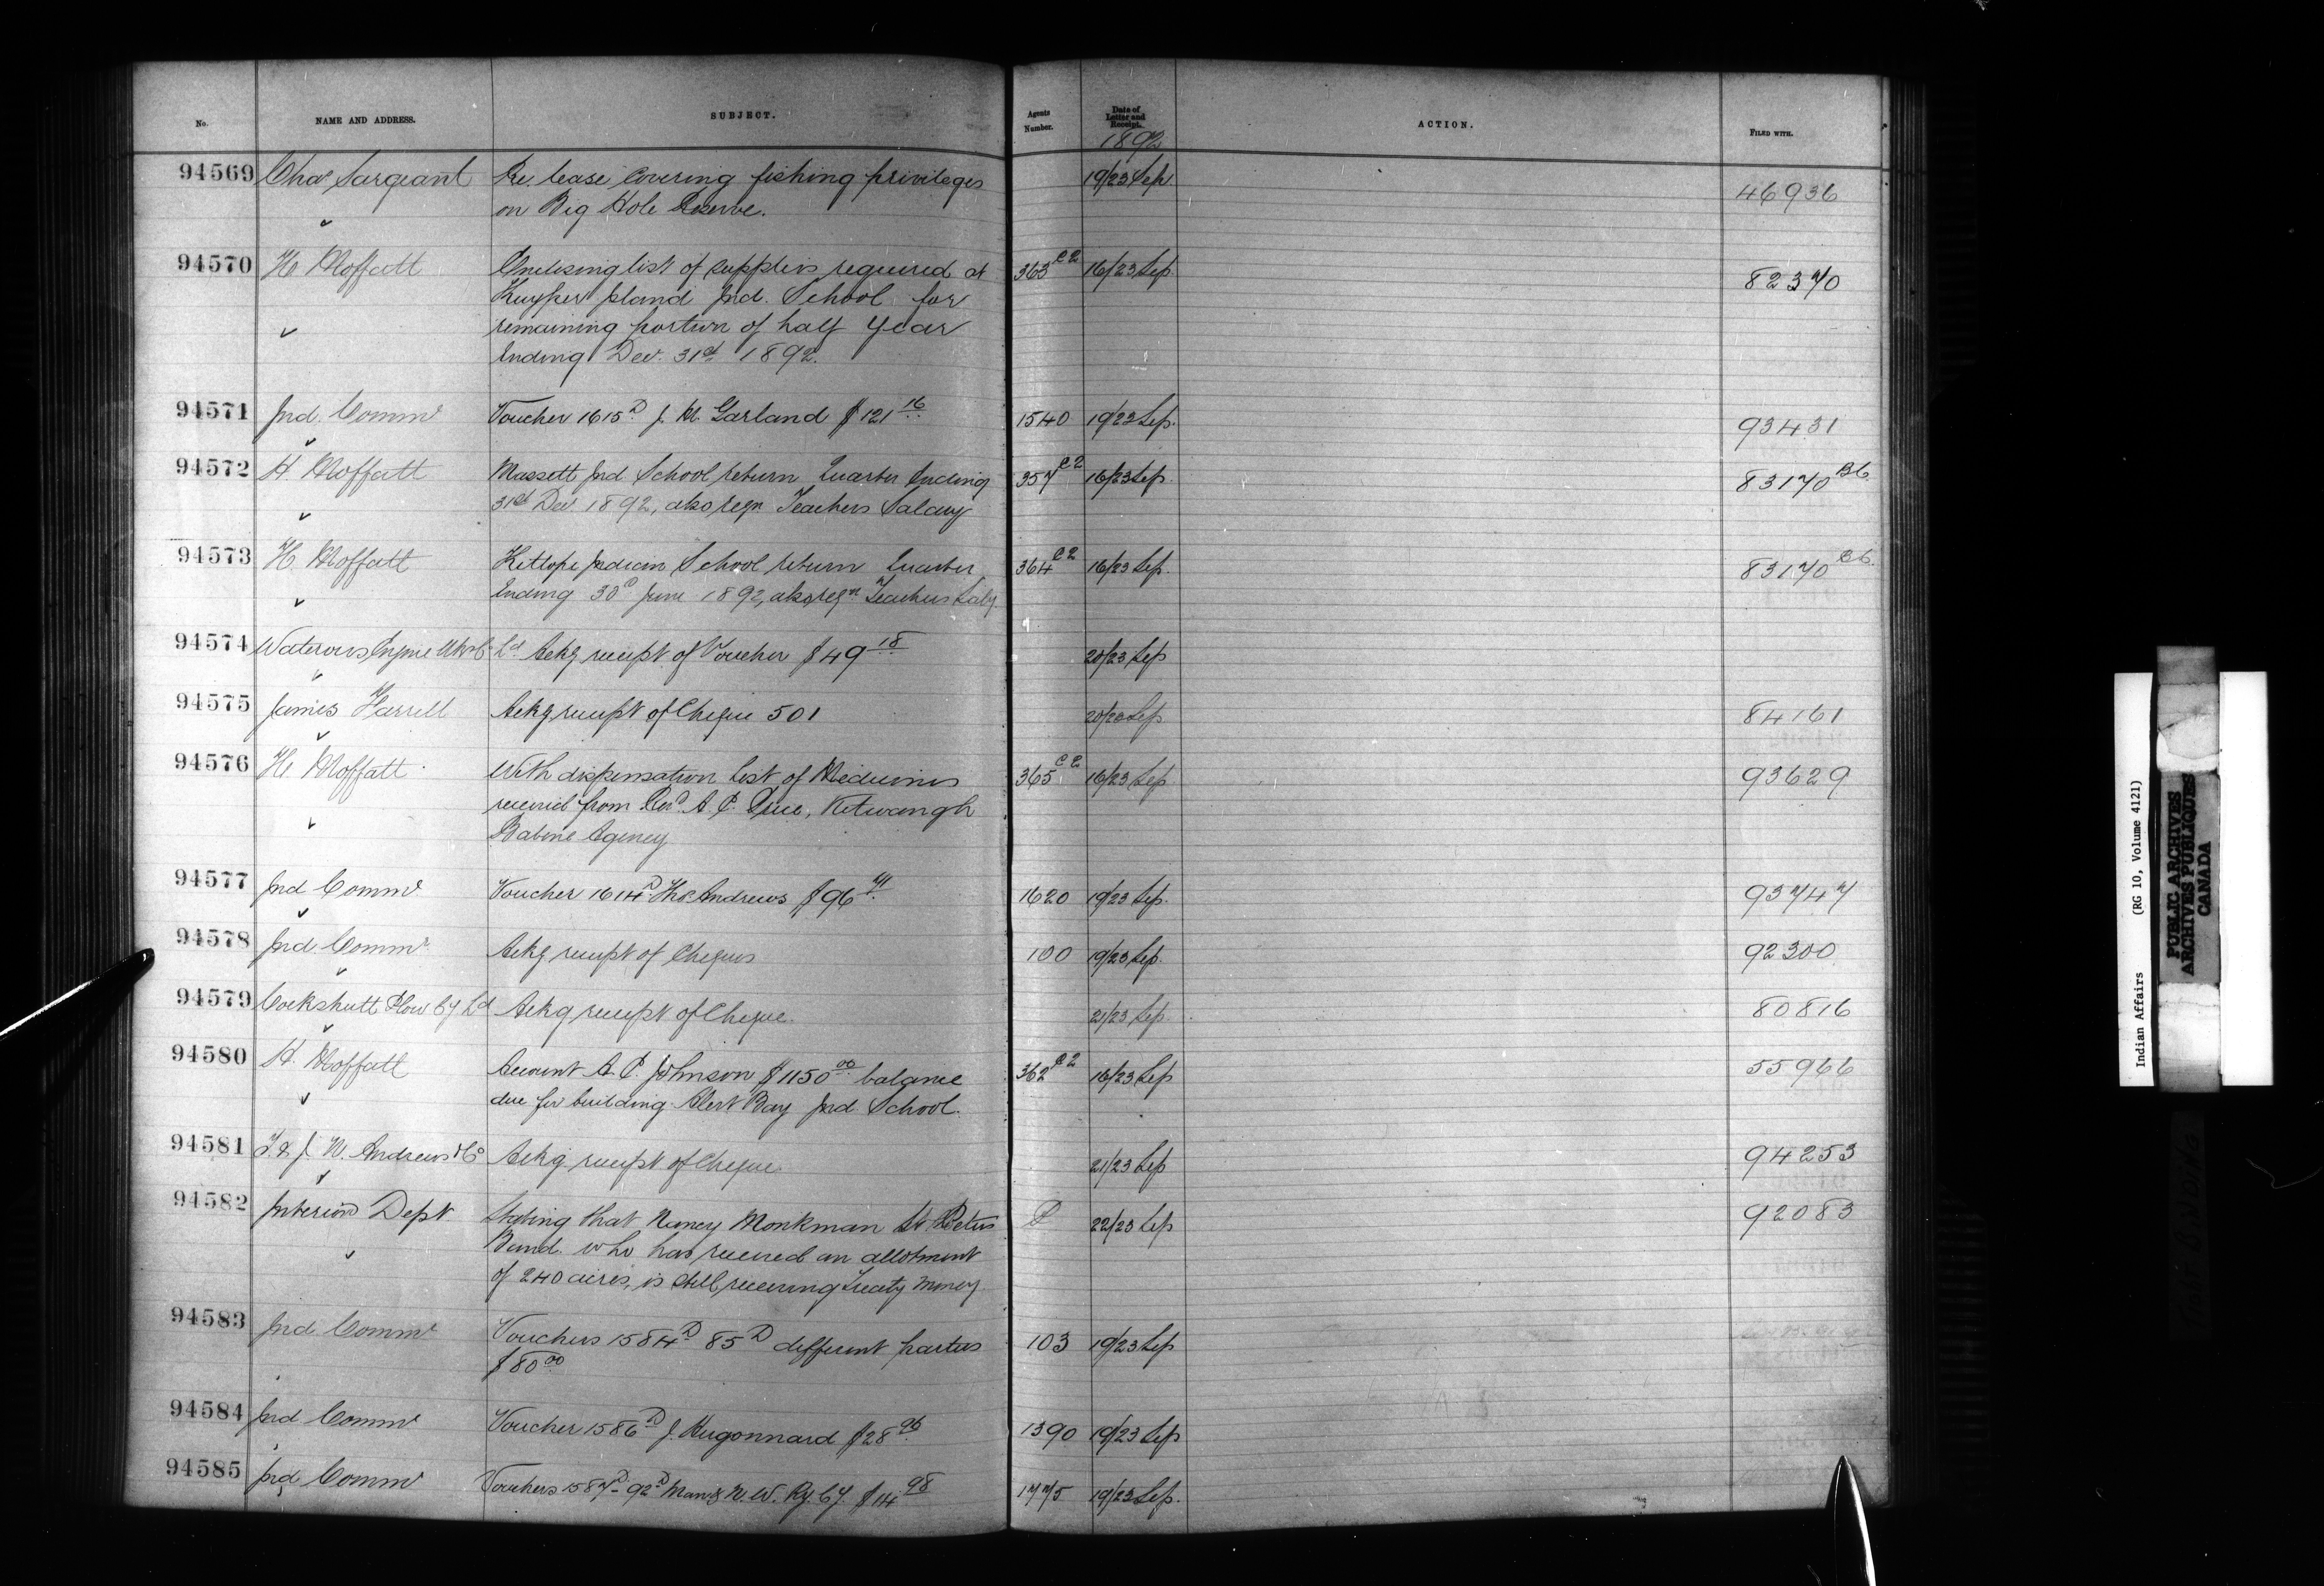 No. NAME AND ADDRESS. SUBJECT. Agents Number. Date of Letter and Receipt. ACTION. FILED WITH.
1892
94569 Chas Sargeant Re. lease covering fishing privileges 19/23 Sep 46936
on Big Hole Reserve.
94570 H Moffatt Enclosing list of supplies required at 363 C2 16/23 Sep. 82370
Kuyper Island Ind. School for
remaining portion of half year
Ending Dec. 31st 1892.
94571 Ind. Commr Voucher 1615D J. M. Garland $121 16 1540 19/23 Sep. 93431
94572 H. Moffatt Massett Ind School return Quarter Ending 357 C2 16/23 Sep. 83170 B6
31st Dec 1892, also reqn Teachers Salary
94573 H. Moffatt Kitlope Indian School return Quarter 364 C2 16/23 Sep. 83170 B6.
Ending 30th June 1892, also reqn Teachers Saly
94574 Waterous Engine Wks Co Ld Ackg receipt of Voucher $49 18 20/23 Sep
94575 James Harrell Ackg receipt of Cheque 501 20/23 Sep 84161
94576 H. Moffatt With dispensation list of Medicines 365 C2 16/23 Sep 93629
received from Revd A. E. Price, Kitwangh
Babine Agency
94577 Ind Commr Voucher 1614D Thos Andrews $96 1620 19/23 Sep. 93747
94578 Ind. Commr Ackg receipt of Cheques 100 19/23 Sep. 92300
94579 Cockshutt Plow Cy Ld Ackg receipt of Cheque. 21/23 Sep. 80816
94580 H. Moffatt Account A. P. Johnson $1150 00 balance 362 C2 16/23 Sep 55966
due for building Alert Bay Ind School.
94581 G. & J. W. Andrews & Co Ackg. receipt of Cheque 21/23 Sep 94253
94582 Interior Dept. Stating that Nancy Monkman St Peters 22/23 Sep 92083
Band. who has received an allotment
of 240 acres, is still receiving Treaty money
94583 Ind. Commr Vouchers 1584D 85D different parties 103 19/23 Sep
$80 00
94584 Ind Commr Voucher 1586D J. Hugonnard $28 96 1390 19/23 Sep
94585 Ind Commr Vouchers 1587D-92D Man & N. W. Ry. Cy. $14 98 1775 19/23 Sep.
Indian Affairs (RG 10, Volume 4121)
PUBLIC ARCHIVES
ARCHIVES PUBLIQUES
CANADA